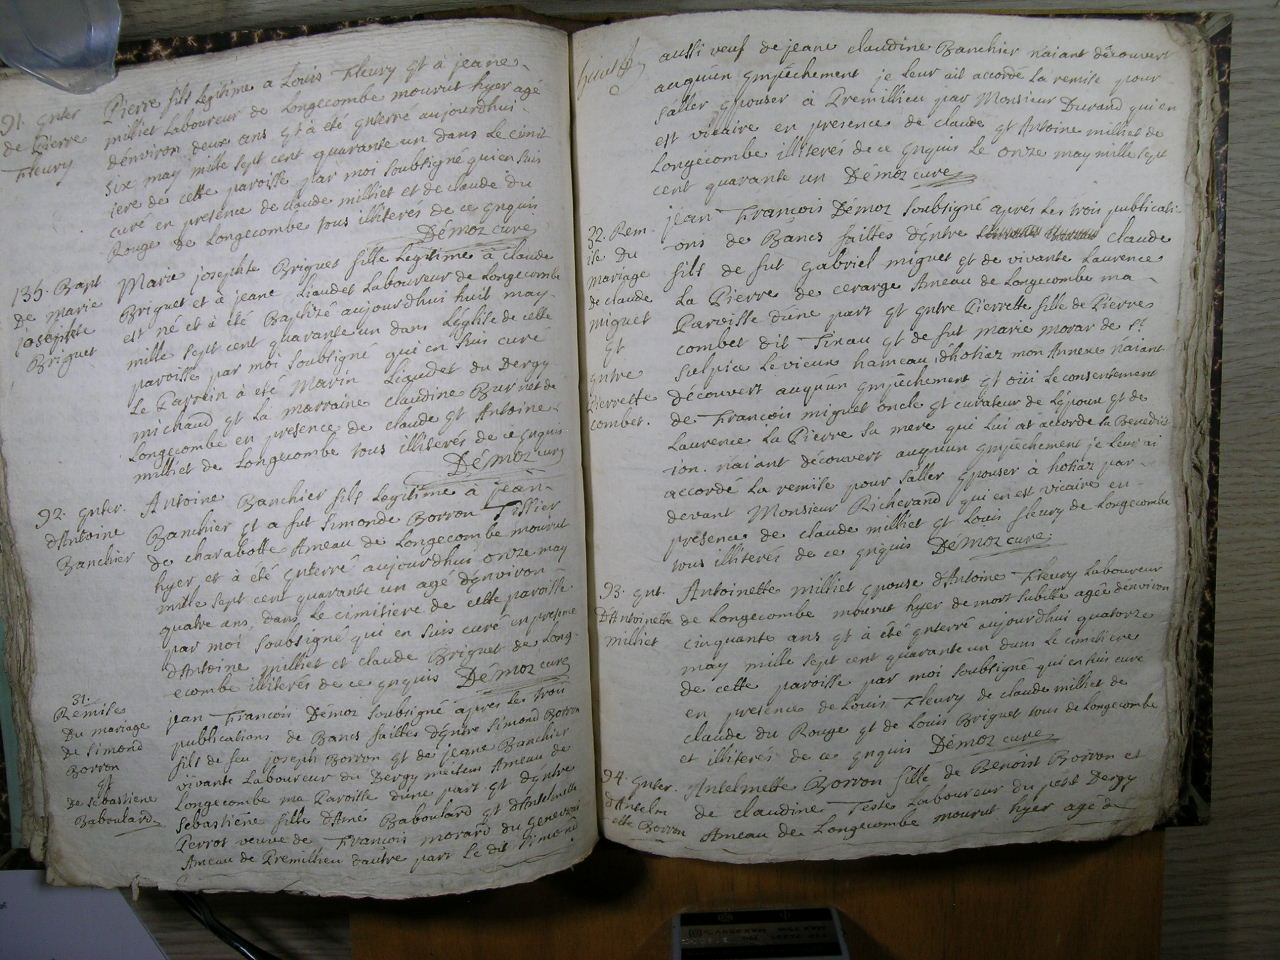 91. Enter
de Pierre
Fleury
Pierre fils Legitime a Louis Fleury Et à jeane
milliet Laboureur de Longecombe mourut hyer agé
dénviron deux ans Et à été Enterré aujourdhui
six may mille sept cent quarante un dans Le cimit
iere des cette paroisse par moi soubsigné qui en suis
curé en presence de claude milliet et de claude du
Rouge de Longecombe tous illiterés de ce Enquis
Démoz curé
135. Bapt
De marie
josephte
Briguet
Marie josephte Briguet fille Legitime à claude
Briguet et à jeane Liaudet Laboureur de Longecombe
est né et à été Baptizé aujourdhui huit may
mille sept cent quarante un dans L'église de cette
paroisse par moi soubsigné qui en suis curé
Le Parrein à été Marin Liaudet du Dergy
michaud Et La marraine claudine Burnet de
Longecombe en presence de claude Et Antoine
milliet de Longecombe tous illiterés de ce Enquis
Démoz curé
92. Enter.
d'Antoine
Banchier
Antoine Banchier fils Legitime à jean
Banchier Et a fut simonde Borron Tissier
de charabotte Ameau de Longecombe mourut
hyer et à été Enterré aujourdhui onze may
mille sept cent quarante un agé dénviron
quatre ans, dans Le cimitiere de cette paroisse
par moi soubsigné qui en suis curé en presence
d'Antoine milliet et claude Briguet de Long-
ecombe illiterés de ce Enquis Démoz curé
31.
Remise
Du mariage
de simond
Borron
Et
De sebastiene
Baboulard
jean François Démoz soubsigné apres Les trois
publications de Bancs faittes d'Entre simond Borron
fils de feu joseph Borron Et de jeane Banchier
vivante Laboureur du Dergy meitem Ameau de
Longecombe ma Paroisse d'une part Et d'Entre
sebastiene fille d'Ame Baboulard Et d'Antelmette
Perrot veuve de François morard du genevrai
Ameau de Premillieu d'autre part Le dit simond
aussi veuf de jeane claudine Banchier n'aiant découvert
auquun Empêchement je Leur ait accordé La remise pour
s'aller Epouser à Premillieu par Monsieur Durand qui en
est vicaire en presence de claude Et Antoine milliet de
Longecombe illiterés de ce Enquis Le onze may mille sept
cent quarante un Démoz curé
32. Rem-
ise du
mariage
de claude
miguet
Et
Entre
Pierrette
combet.
jean François Démoz soubsigné aprés Les trois publicati-
ons de Bancs faittes d'Entre claude
fils de fut gabriel miguet Et de vivante Laurence
La Pierre de cerarge Ameau de Longecombe ma-
Paroisse d'une part Et Entre Pierrette fille de Pierre
combet dit Tinau Et de fut marie morar de st
sulpice Le vieux hameau d'hotiaz mon Annexe n'aiant
découvert auquun Empêchement Et oüi Le consentement
de François miguet oncle Et curateur de L'époux Et de
Laurence La Pierre sa mere qui Lui at accordé sa Benedic
tion. n'aiant découvert auquun Empêchement je Leur ai
accordé La remise pour s'aller Epouser à hotiaz par-
devant Monsieur Richerand qui en est vicaire en-
présence de claude milliet Et Louis fleury de Longecombe
tous illiterés de ce Enquis Démoz curé
93. Ent.
D'Antoinette
milliet
Antoinette milliet Epouse d'Antoine Fleury Laboureur
de Longecombe mourut hyer de mort subitte agée dénviron
cinquante ans Et à été Enterré aujourdhui quatorze
may mille sept cent quarante un dans Le cimetiere
de cette paroisse par moi soubsigné qui en suis curé
en presence de Louis Fleury de claude milliet de
claude du Rouge Et de Louis Briguet tous de Longecombe
et illiterés de ce Enquis Démoz curé
94. Enter.
d'Antelm
ette Borron
Antelmette Borron fille de Benoist Borron et
de claudine Teste Laboureur du petit Dergy
Ameau de Longecombe mourut hyer agé d